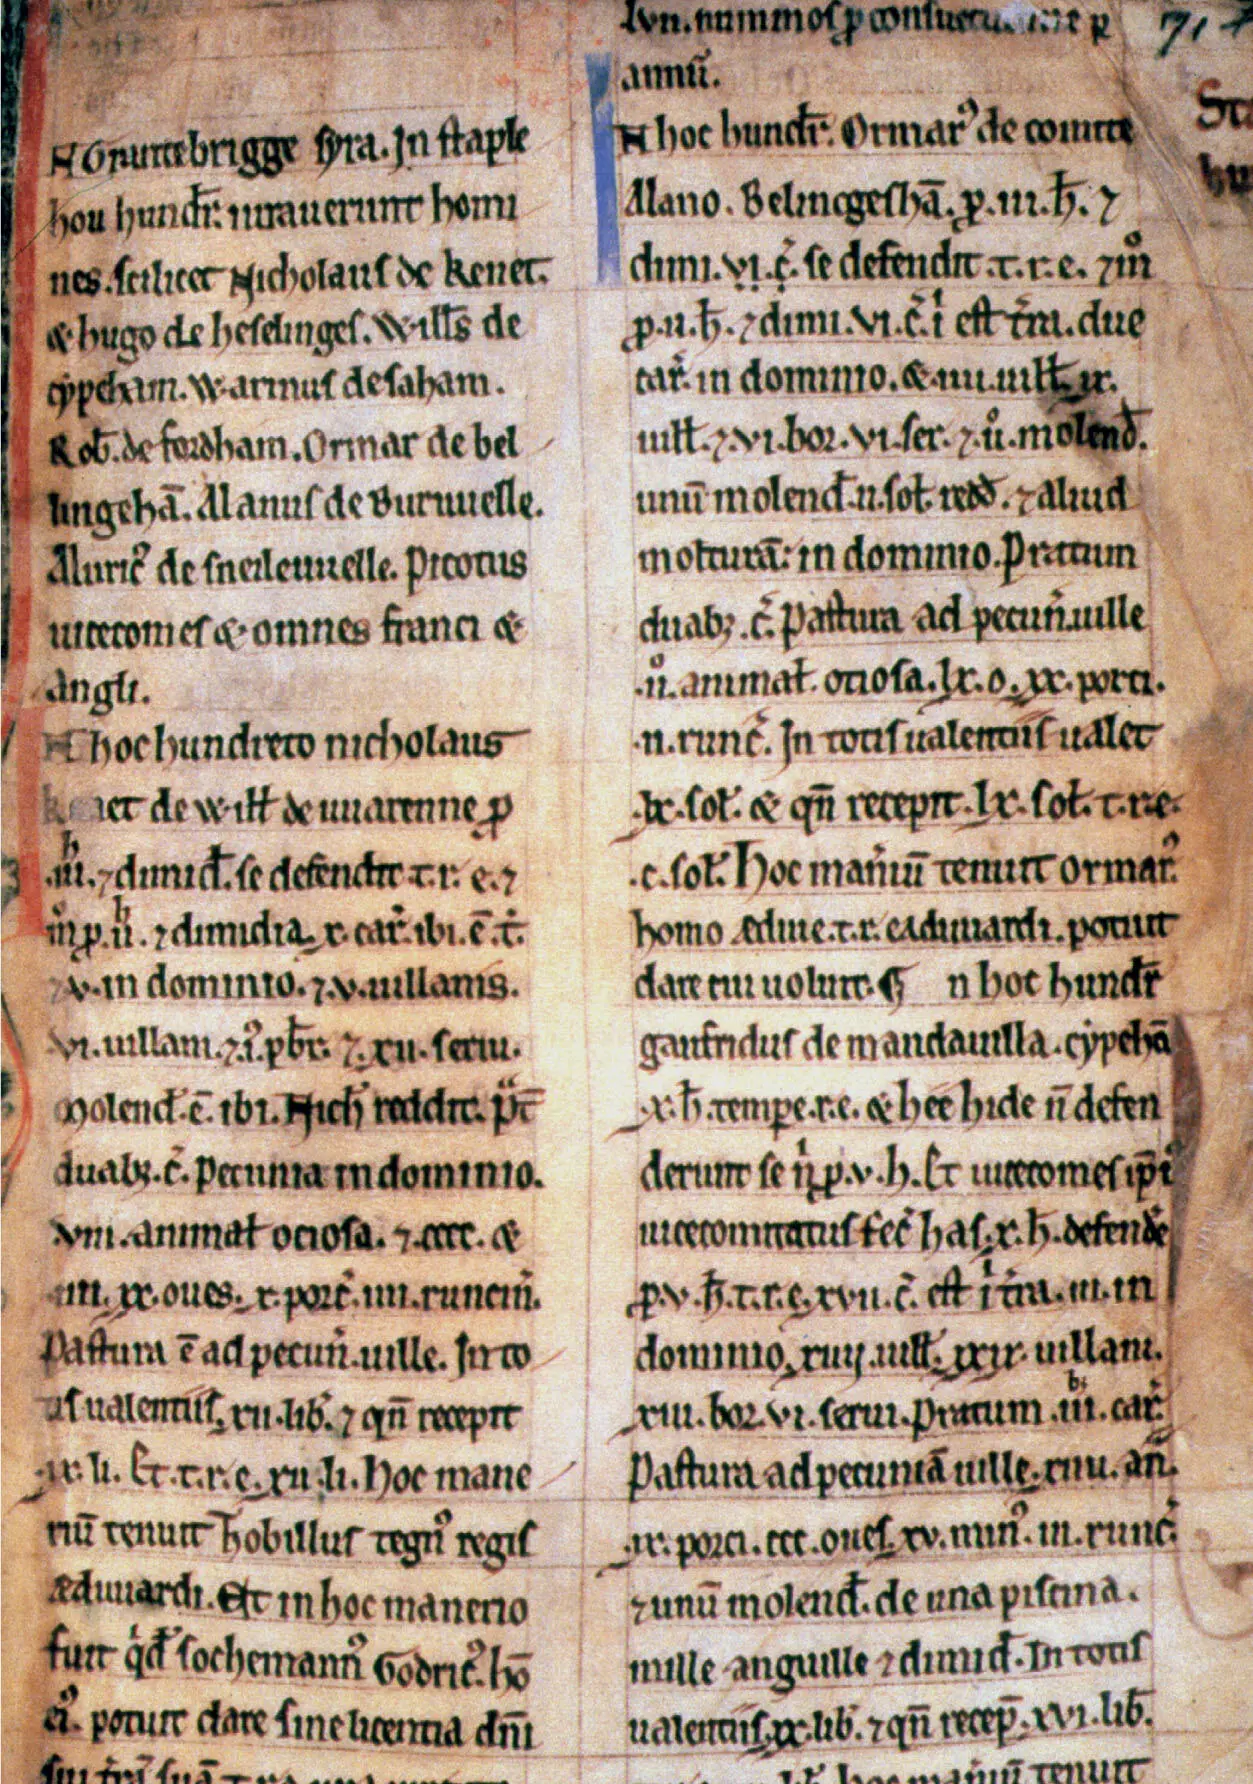 N Gruttebrigge syra. In staple
hou hundr̄. iurauerunt homi
nes. scilicet Nicholaus de kenet.
& hugo de heselinges. Wills̄ de
cypehām. Warinus de saham.
Rob̄. de fordham. Ormar de bel
lingehā. Alanus de Buruuelle.
Aluric᾽ de sneileuuelle. Picotus
uicecomes & omnes franci &
angli.
N hoc hundreto nicholaus
kenet de Will̄ de uuarenne ꝑ
.iii. h ⁊ dimid̄. se defendit .t.r.e. ⁊
m̊ ꝑ .ii. h ⁊ dimidia. x. car̄. ibi. ē. t̄.
⁊ v. in dominio. ⁊ .v. uillanis.
vi. uillani. ⁊ .i. pb̄r. ⁊ .xii. serui.
Molend̄. ē. ibi. Nich̄ reddit. pt̄
duabꝫ .c̄. Pecunia in dominio.
viii. animal̄ ociosa. ⁊ .cccc. &
.iiii. xx. oues. x. porc̄. iiii. runcin̄.
Pastura ē ad pecun̄. uille. In to
tis ualentiis. xii. lib̄. ⁊ qn̄ recepit
ix. li. Et .t.r.e. xii. li. Hoc mane
riū tenuit hobillus tegn᾽ regis
Æduuardi. Et in hoc manerio
fuit q̇d̄ sochemann᾽ Godric᾽. hō
ei᾽. potuit dare sine licentia dn̄i
lvn. nummos ꝑ ꝑ
annū.
N hoc hundr̄. Ormar᾽ de comite
Alano. Belincgeshā. ꝑ .iii. h̄. ⁊
dimi. vi. c̄. se defendit .t.r.e. ⁊ m̊
ꝑ .ii. h̄. ⁊ dimi. vi. c̄. i est t̄ra. due
car̄. in dominio. & .iiii. uill̄. ix.
uill̄. ⁊ .vi. bor. vi. ser. ⁊ .ii. molend̄.
unū molend̄ .ii. sol̄. redd̄. ⁊ aliud
molturā in dominio. Pratum
duabꝫ .c̄. Pastura ad pecun̄. uille
.ii. animal̄. ociosa. lx. o. xx. porci.
.ii. runc̄. In totis ualentiis ualet
.lx. sol̄. & qn̄ recepit. lx. sol̄. t.r.e.
.c. sol̄. Hoc maniū tenuit ormar᾽
homo Ædiue .t.r. eaduuardi. potuit
dare cui uoluit. n hoc hundr̄
gaufridus de mandauilla. cypehā
.x. h̄. tempe .r.e. & hee hide n̄ defen
derunt se n̄ ꝑ .v. h. Et uicecomes ipi᾽
uicecomitatus fec̄ has .x. h̄. defendē
ꝑ .v. h̄. t.r.e. xvii. c̄. est i t̄ra. iii. in
dominio, xiiij. uill̄. xix. uillani.
xiii. bor. vi. serui. Pratum .iii. car̄.
Pastura ad pecuniā uille. xiiii. an̄.
.ix. porci. ccc. oues. xv. min᾽. iii. runc̄.
⁊ unū molend̄. de una piscina.
mille anguille ⁊ dimid̄. In totis
ualentiis. xx. lib̄. ⁊ qn̄ recep̄. xvi. lib̄.
hoc tenuit
71